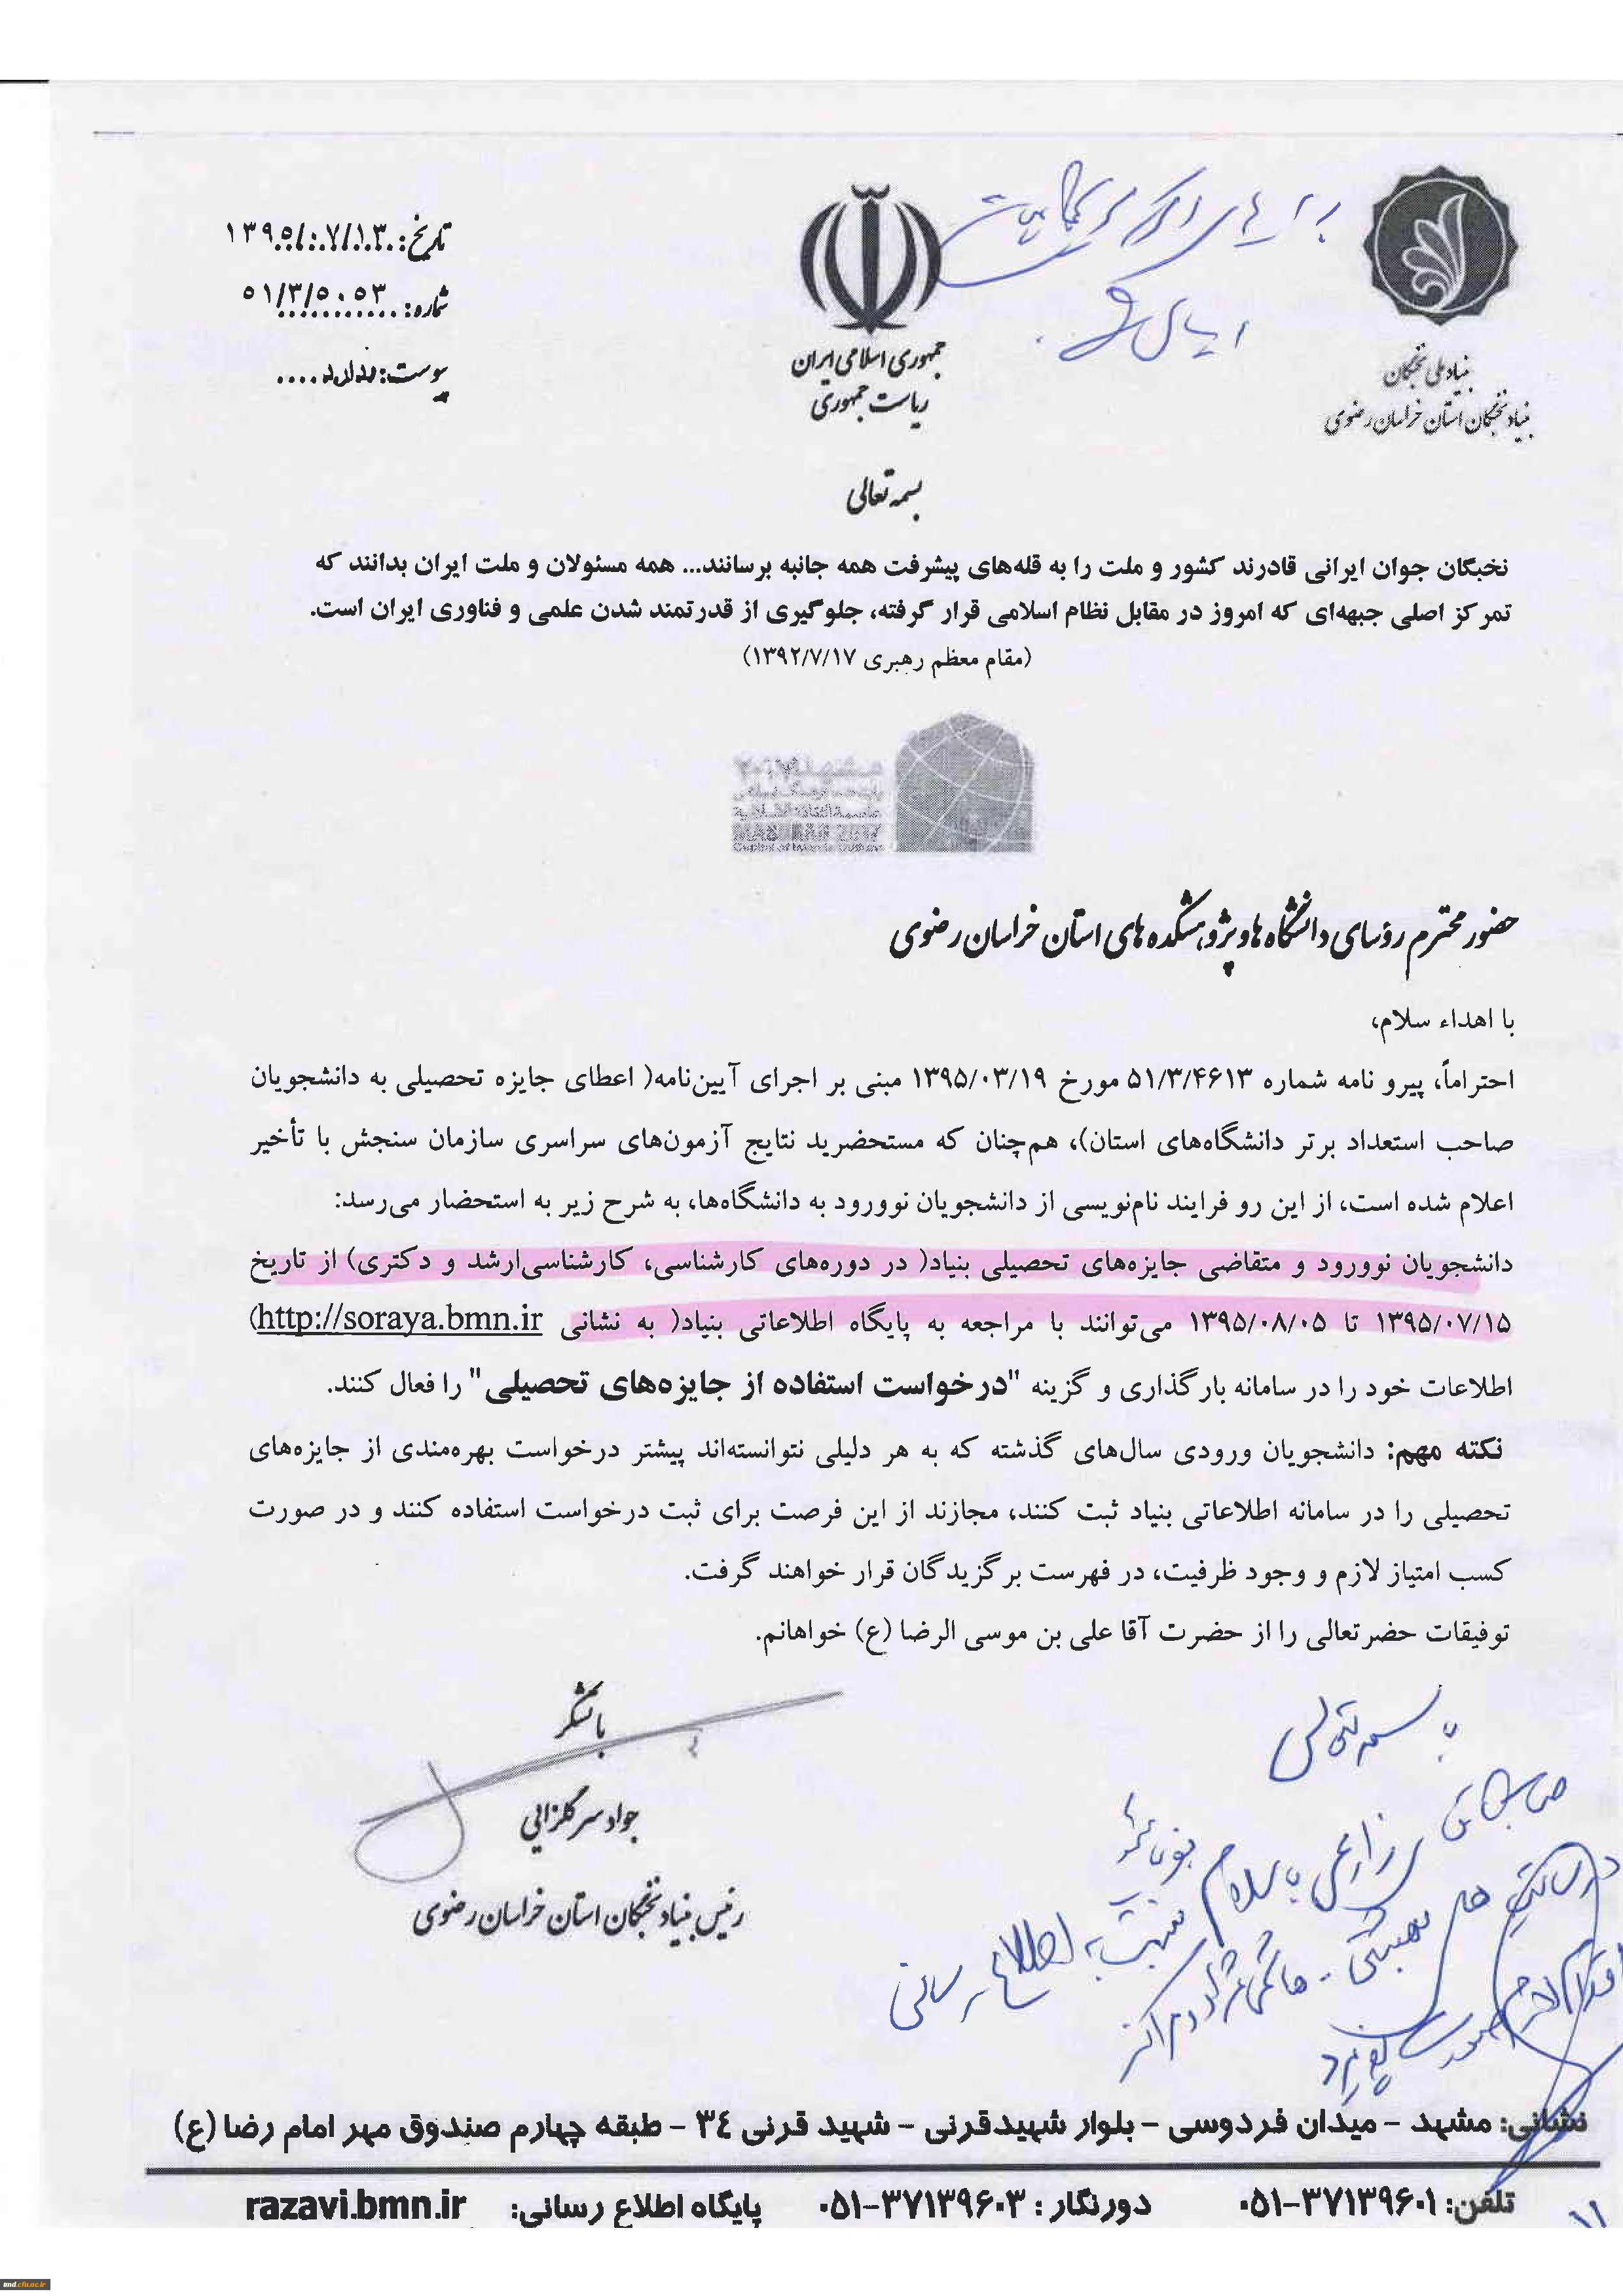 تاریخ: ۱۳۹۵/۰۷/۱۳
شماره: ۵۱/۳/۵۰۵۳
پیوست: ندارد
جمهوری اسلامی ایران
ریاست جمهوری
بنیاد ملی نخبگان
بنیاد نخبگان استان خراسان رضوی
بسمه تعالی
نخبگان جوان ایرانی قادرند کشور و ملت را به قله‌های پیشرفت همه جانبه برسانند... همه مسئولان و ملت ایران بدانند که
تمرکز اصلی جبهه‌ای که امروز در مقابل نظام اسلامی قرار گرفته، جلوگیری از قدرتمند شدن علمی و فناوری ایران است.
(مقام معظم رهبری ۱۳۹۲/۷/۱۷)
مشهد ۲۰۱۷
MASHHAD 2017
حضور محترم رؤسای دانشگاه ها و پژوهشکده های استان خراسان رضوی
با اهداء سلام،
احتراماً، پیرو نامه شماره ۵۱/۳/۴۶۱۳ مورخ ۱۳۹۵/۰۳/۱۹ مبنی بر اجرای آیین‌نامه( اعطای جایزه تحصیلی به دانشجویان
صاحب استعداد برتر دانشگاه‌های استان)، هم‌چنان که مستحضرید نتایج آزمون‌های سراسری سازمان سنجش با تأخیر
اعلام شده است، از این رو فرایند نام‌نویسی از دانشجویان نوورود به دانشگاه‌ها، به شرح زیر به استحضار می‌رسد:
دانشجویان نوورود و متقاضی جایزه‌های تحصیلی بنیاد( در دوره‌های کارشناسی، کارشناسی‌ارشد و دکتری) از تاریخ
۱۳۹۵/۰۷/۱۵ تا ۱۳۹۵/۰۸/۰۵ می‌توانند با مراجعه به پایگاه اطلاعاتی بنیاد( به نشانی http://soraya.bmn.ir)
اطلاعات خود را در سامانه بارگذاری و گزینه "درخواست استفاده از جایزه‌های تحصیلی" را فعال کنند.
نکته مهم: دانشجویان ورودی سال‌های گذشته که به هر دلیلی نتوانسته‌اند پیشتر درخواست بهره‌مندی از جایزه‌های
تحصیلی را در سامانه اطلاعاتی بنیاد ثبت کنند، مجازند از این فرصت برای ثبت درخواست استفاده کنند و در صورت
کسب امتیاز لازم و وجود ظرفیت، در فهرست برگزیدگان قرار خواهند گرفت.
توفیقات حضرتعالی را از حضرت آقا علی بن موسی الرضا (ع) خواهانم.
با تشکر
جواد سرگلزایی
رئیس بنیاد نخبگان استان خراسان رضوی
بسمه تعالی
با سلام
نسبت به اطلاع رسانی
نشانی: مشهد - میدان فردوسی - بلوار شهیدقرنی - شهید قرنی ۳٤ - طبقه چهارم صندوق مهر امام رضا (ع)
تلفن: ۳۷۱۳۹۶۰۱-۰۵۱ دورنگار : ۳۷۱۳۹۶۰۳-۰۵۱ پایگاه اطلاع رسانی: razavi.bmn.ir